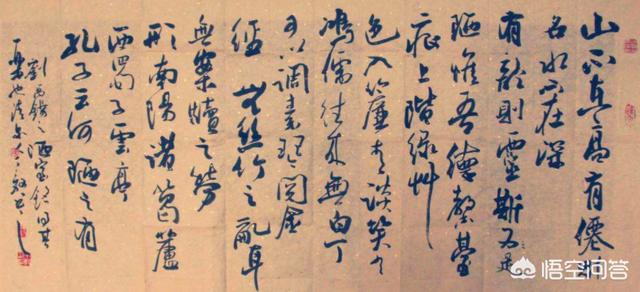 山不在高有僊則
名水不在深
有龍則靈斯是
陋惟吾德馨苔
痕上階綠艸
色入簾青談笑有
鴻儒往來無白丁
可以調素琴閱金
經無絲竹之亂耳
無案牘之勞
形南陽諸葛廬
西蜀子雲亭
孔子云何陋之有
劉禹錫之陋室銘
悟空问答